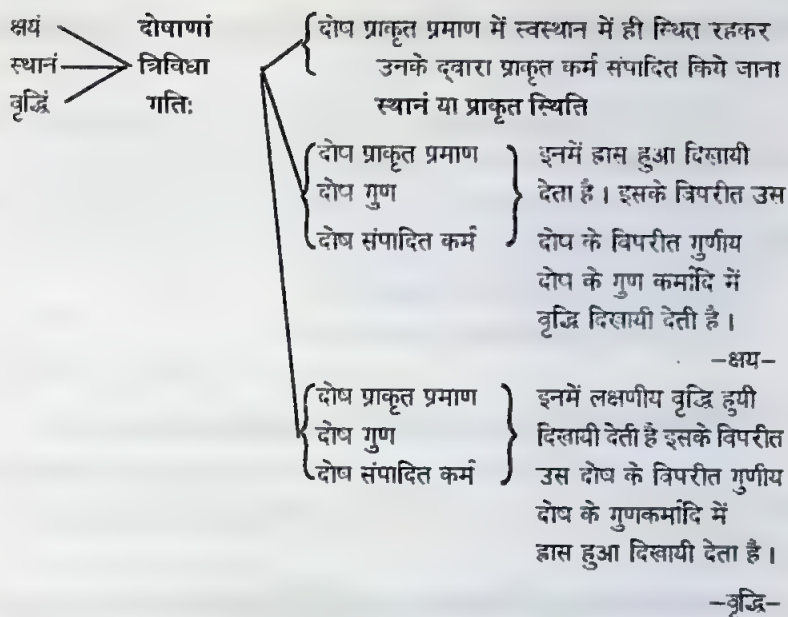 क्षयं
स्थानं
वृद्धिं
दोषाणां
त्रिविधा
गतिः
दोष प्राकृत प्रमाण में स्वस्थान में ही स्थित रहकर
उनके द्वारा प्राकृत कर्म संपादित किये जाना
स्थानं या प्राकृत स्थिति
दोष प्राकृत प्रमाण
दोष गुण
दोष संपादित कर्म
इनमें ह्रास हुआ दिखायी
देता है । इसके विपरीत उस
दोष के विपरीत गुणीय
दोष के गुण कर्मादि में
वृद्धि दिखायी देती है ।
–क्षय–
दोष प्राकृत प्रमाण
दोष गुण
दोष संपादित कर्म
इनमें लक्षणीय वृद्धि हुयी
दिखायी देती है इसके विपरीत
उस दोष के विपरीत गुणीय
दोष के गुणकर्मादि में
ह्रास हुआ दिखायी देता है ।
–वृद्धि–